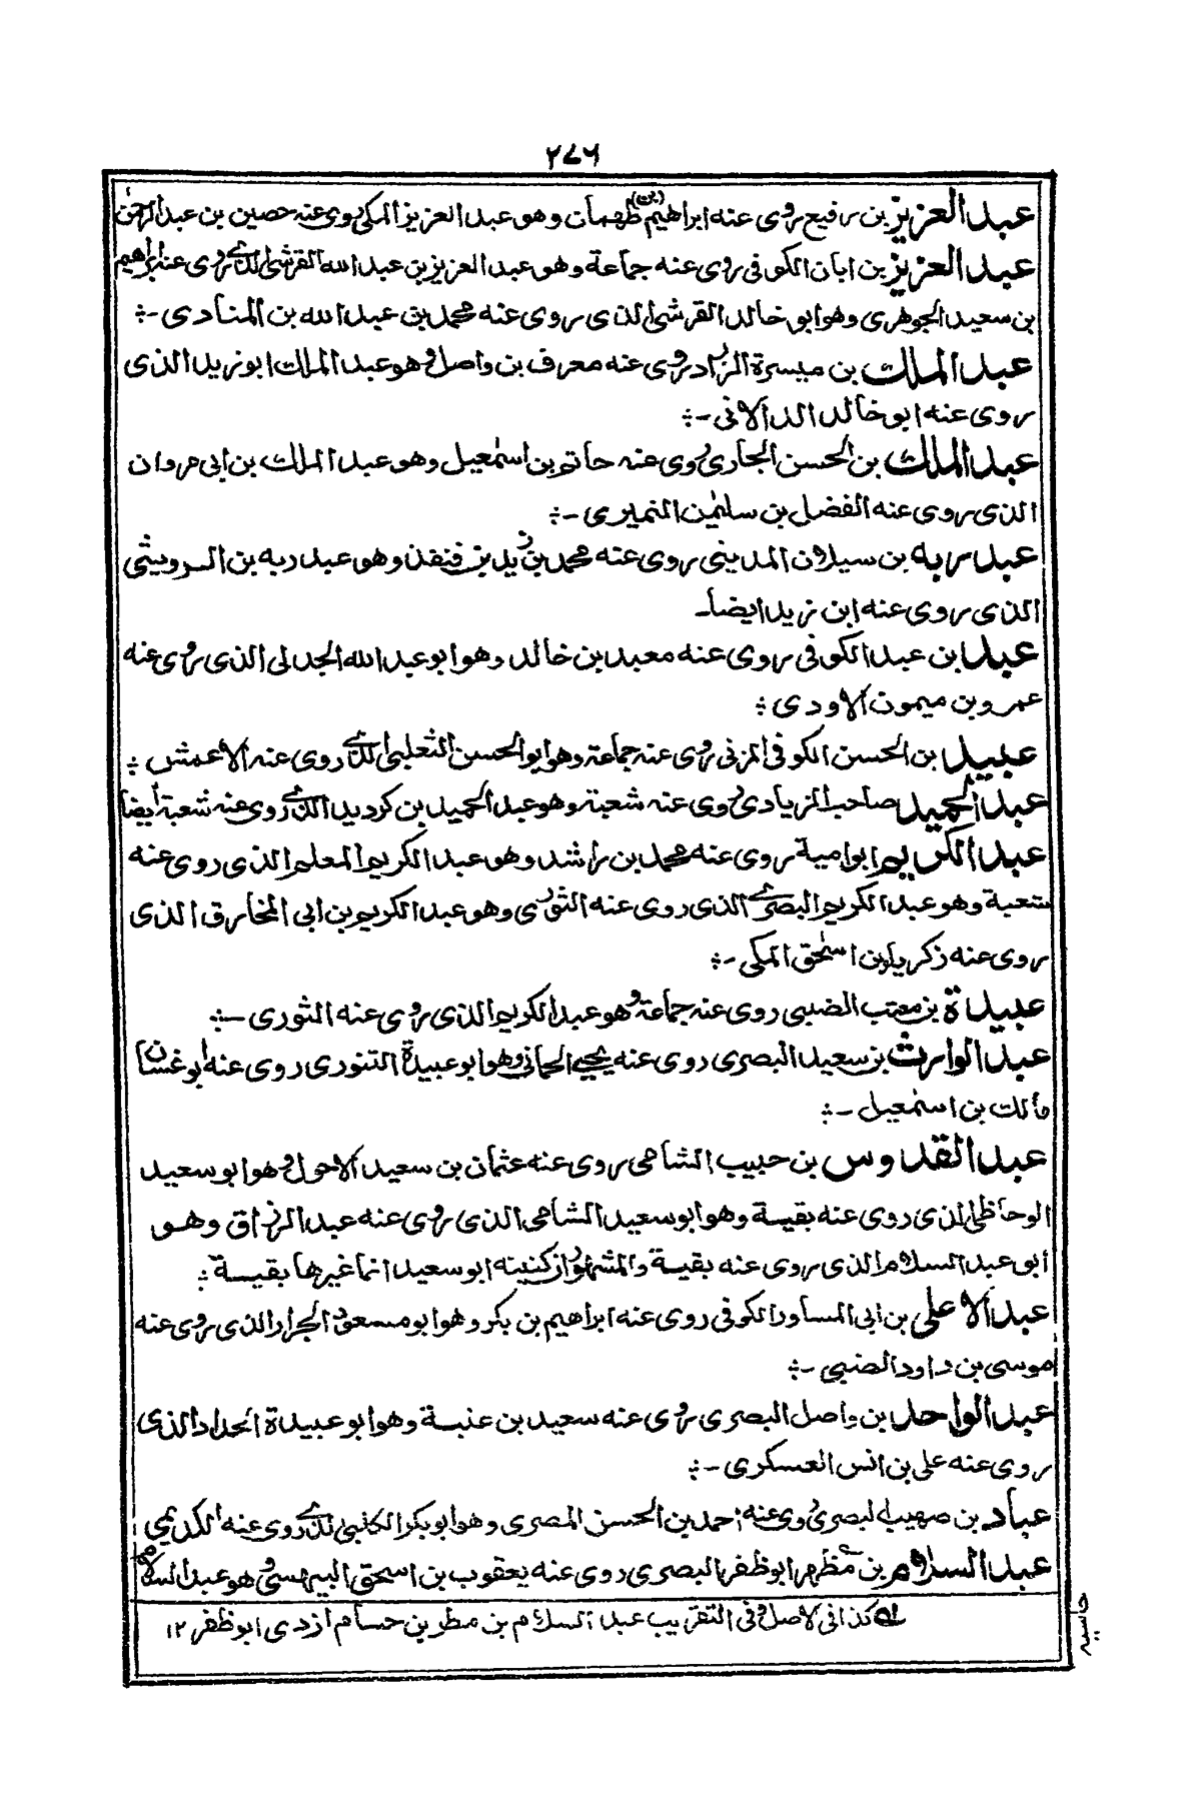 ٢٧٦
عبد العزيز بن رفيع روى عنه ابراهيم (بن) طهمان وهو عبد العزيز المكي روى عنه حصين بن عبد الرحمن
عبد العزيز بن ابان الكوفى روى عنه جماعة وهو عبد العزيز بن عبد الله القرشى الذى روى عنه ابراهيم
بن سعيد الجوهرى وهو ابو خالد القرشى الذى روى عنه محمد بن عبد الله بن المنادى -:
عبد الملك بن ميسرة الزراد روى عنه معرف بن واصل وهو عبد الملك ابو زيد الذى
روى عنه ابو خالد الدالانى -:
عبد الملك بن الحسن الجارى روى عنه حاتم بن اسمٰعيل وهو عبد الملك بن ابى مروان
الذى روى عنه الفضل بن سليمٰن النميرى -:
عبد ربه بن سيلان المدينى روى عنه محمد بن زيد بن قنفذ وهو عبد ربه بن الدويثى
الذى روى عنه ابن زيد ايضا۔
عبد بن عبد الكوفى روى عنه معبد بن خالد وهو ابو عبد الله الجدلى الذى روى عنه
عمرو بن ميمون الاودى :
عبيد بن الحسن الكوفى المزنى روى عنه جماعة وهو ابو الحسن الثعلبى الذى روى عنه الاعمش :
عبد الحميد صاحب الزيادى روى عنه شعبة وهو عبد الحميد بن كرديد الذى روى عنه شعبة ايضا
عبد الكريم ابو امية روى عنه محمد بن راشد وهو عبد الكريم المعلم الذى روى عنه
شعبة وهو عبد الكريم البصرى الذى روى عنه الثورى وهو عبد الكريم بن ابى المخارق الذى
روى عنه زكريا بن اسحٰق المكى -:
عبيدة بن معتب الضبى روى عنه جماعة وهو عبد الكريم الذى روى عنه الثورى -:
عبد الوارث بن سعيد البصرى روى عنه يحيى الحمانى وهو ابو عبيدة التنورى روى عنه ابو غسان
مالك بن اسمٰعيل -:
عبد القدوس بن حبيب الشامى روى عنه عثمان بن سعيد الاحول وهو ابو سعيد
الوحاظى الذى روى عنه بقيسة وهو ابو سعيد الشامى الذى روى عنه عبد الرزاق وهو
ابو عبد السلام الذى روى عنه بقيسة والمشهور ان كنيته ابو سعيد انما غيرها بقيسة :
عبد الاعلى بن ابى المساور الكوفى روى عنه ابراهيم بن بكر وهو ابو مسعود الجرار الذى روى عنه
موسى بن داود الضبى -:
عبد الواحد بن واصل البصرى روى عنه سعيد بن عنبسة وهو ابو عبيدة الحداد الذى
روى عنه على بن انس العسكرى -:
عباد بن صهيب البصرى روى عنه احمد بن الحسن المصرى وهو ابو بكر الكليبى الذى روى عنه الكديمى
عبد السلام بن مظهر ابو ظفر البصرى روى عنه يعقوب بن اسحٰق البيهسى وهو عبد السلام
له كذا فى الاصل وفى التقريب عبد السلام بن مطر بن حسام ازدى ابو ظفر ١٢
حاشيه